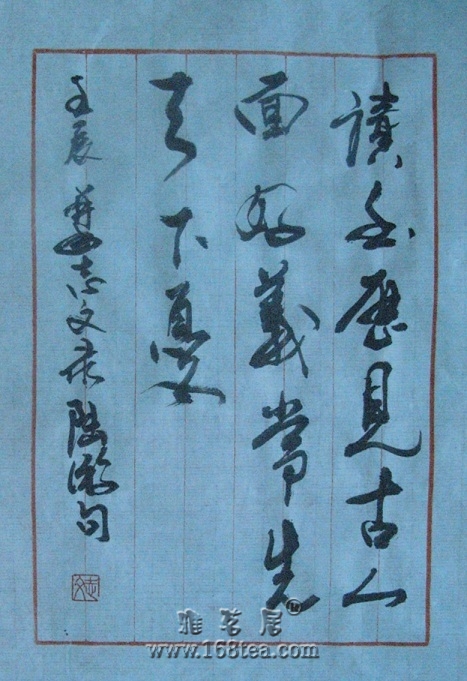 讀書歷見古人
面好義常先
天下憂
壬辰 姜志文录陸游句
志文
雅茗居®
www.168tea.com